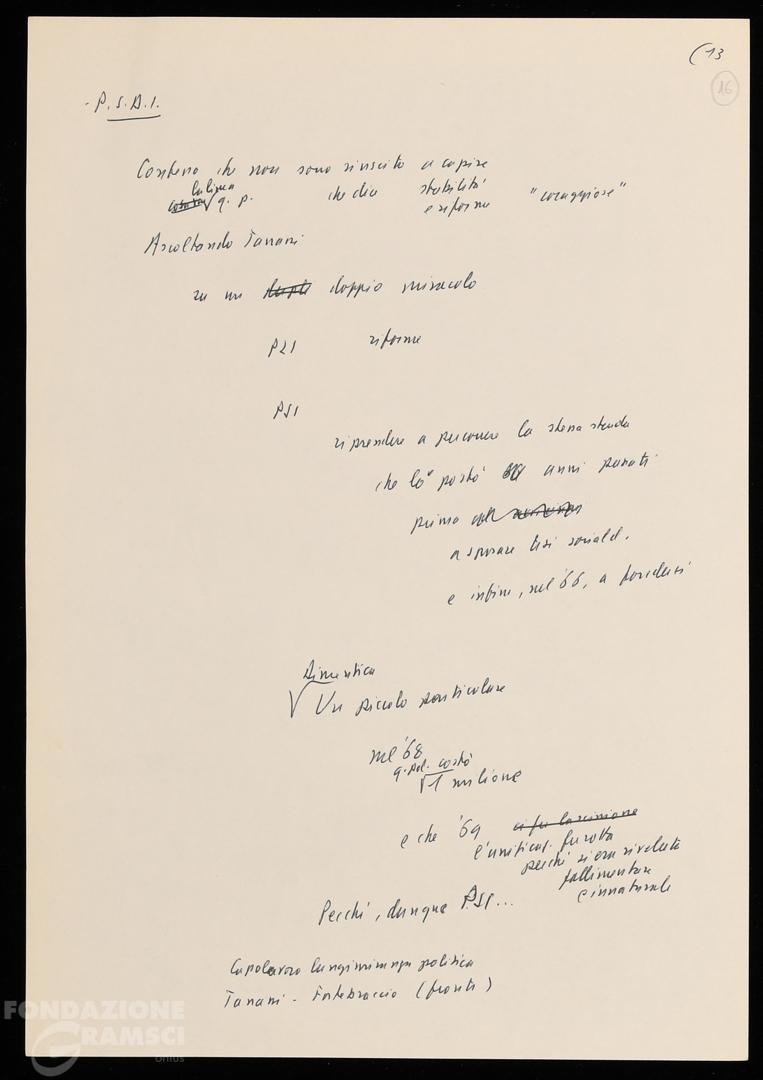 (13
16
- P.S.D.I.
Confesso che non sono riuscito a capire
la linea
q. p. che dia stabilità
e riforme "coraggiose"
Ascoltando Tanassi
su un doppio miracolo
PLI riforme
PSI
riprendere a percorrere la stessa strada
che lo portò anni passati
prima
a sposare tesi sociald.
e infine, nel '66, a fondersi
Dimentica
Un piccolo particolare
nel '68
q. costò
1 milione
e che '69 ci fu la scissione
l'unificaz. fu rotta
perché si era rivelata
fallimentare
e innaturale
Perché, dunque PSI...
Capolavoro lungimiranza politica
Tanassi - Fortebraccio (fronte)
FONDAZIONE
GRAMSCI
onlus